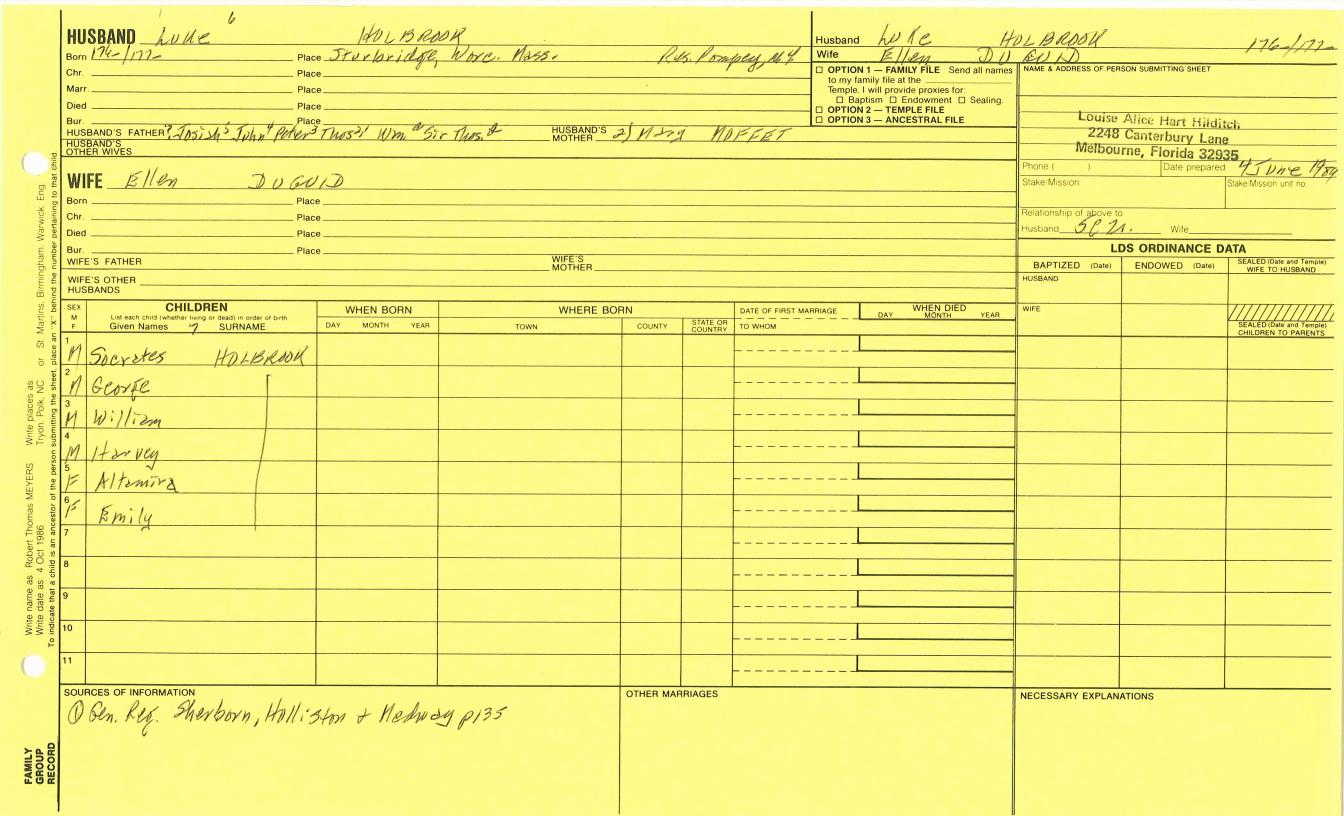 HUSBAND Luke 6 HOLBROOK
Born 176-/177- Place Sturbridge, Worc. Mass. Res. Pompey, NY
Chr. Place
Marr. Place
Died Place
Bur. Place
HUSBAND'S FATHER Josiah5 John4 Peter3 Thos2,1 Wm Sir Thos. HUSBAND'S MOTHER 2) Mary MOFFET
HUSBAND'S OTHER WIVES
WIFE Ellen DUGUID
Born Place
Chr. Place
Died Place
Bur. Place
WIFE'S FATHER WIFE'S MOTHER
WIFE'S OTHER HUSBANDS
Husband Luke HOLBROOK 176-/177-
Wife Ellen DUGUID
☐ OPTION 1 — FAMILY FILE Send all names
to my family file at the
Temple. I will provide proxies for:
☐ Baptism ☐ Endowment ☐ Sealing.
☐ OPTION 2 — TEMPLE FILE
☐ OPTION 3 — ANCESTRAL FILE
NAME & ADDRESS OF PERSON SUBMITTING SHEET
Louise Alice Hart Hilditch
2248 Canterbury Lane
Melbourne, Florida 32935
Phone ( ) Date prepared 4 June 1989
Stake/Mission Stake/Mission unit no.
Relationship of above to
Husband Wife
LDS ORDINANCE DATA
BAPTIZED (Date) ENDOWED (Date) SEALED (Date and Temple) WIFE TO HUSBAND
HUSBAND
WIFE
SEALED (Date and Temple) CHILDREN TO PARENTS
SEX M F
CHILDREN
List each child (whether living or dead) in order of birth
Given Names 7 SURNAME
WHEN BORN
DAY MONTH YEAR
WHERE BORN
TOWN COUNTY STATE OR COUNTRY
DATE OF FIRST MARRIAGE
TO WHOM
WHEN DIED
DAY MONTH YEAR
1 M Socrates HOLBROOK
2 M George
3 M William
4 M Harvey
5 F Altamira
6 F Emily
7
8
9
10
11
SOURCES OF INFORMATION
① Gen. Reg. Sherborn, Holliston & Medway p135
OTHER MARRIAGES
NECESSARY EXPLANATIONS
Write name as: Robert Thomas MEYERS Write places as: Tryon, Polk, NC or St. Martins, Birmingham, Warwick, Eng.
Write date as: 4 Oct 1986
To indicate that a child is an ancestor of the person submitting the sheet, place an "X" behind the number pertaining to that child.
FAMILY
GROUP
RECORD